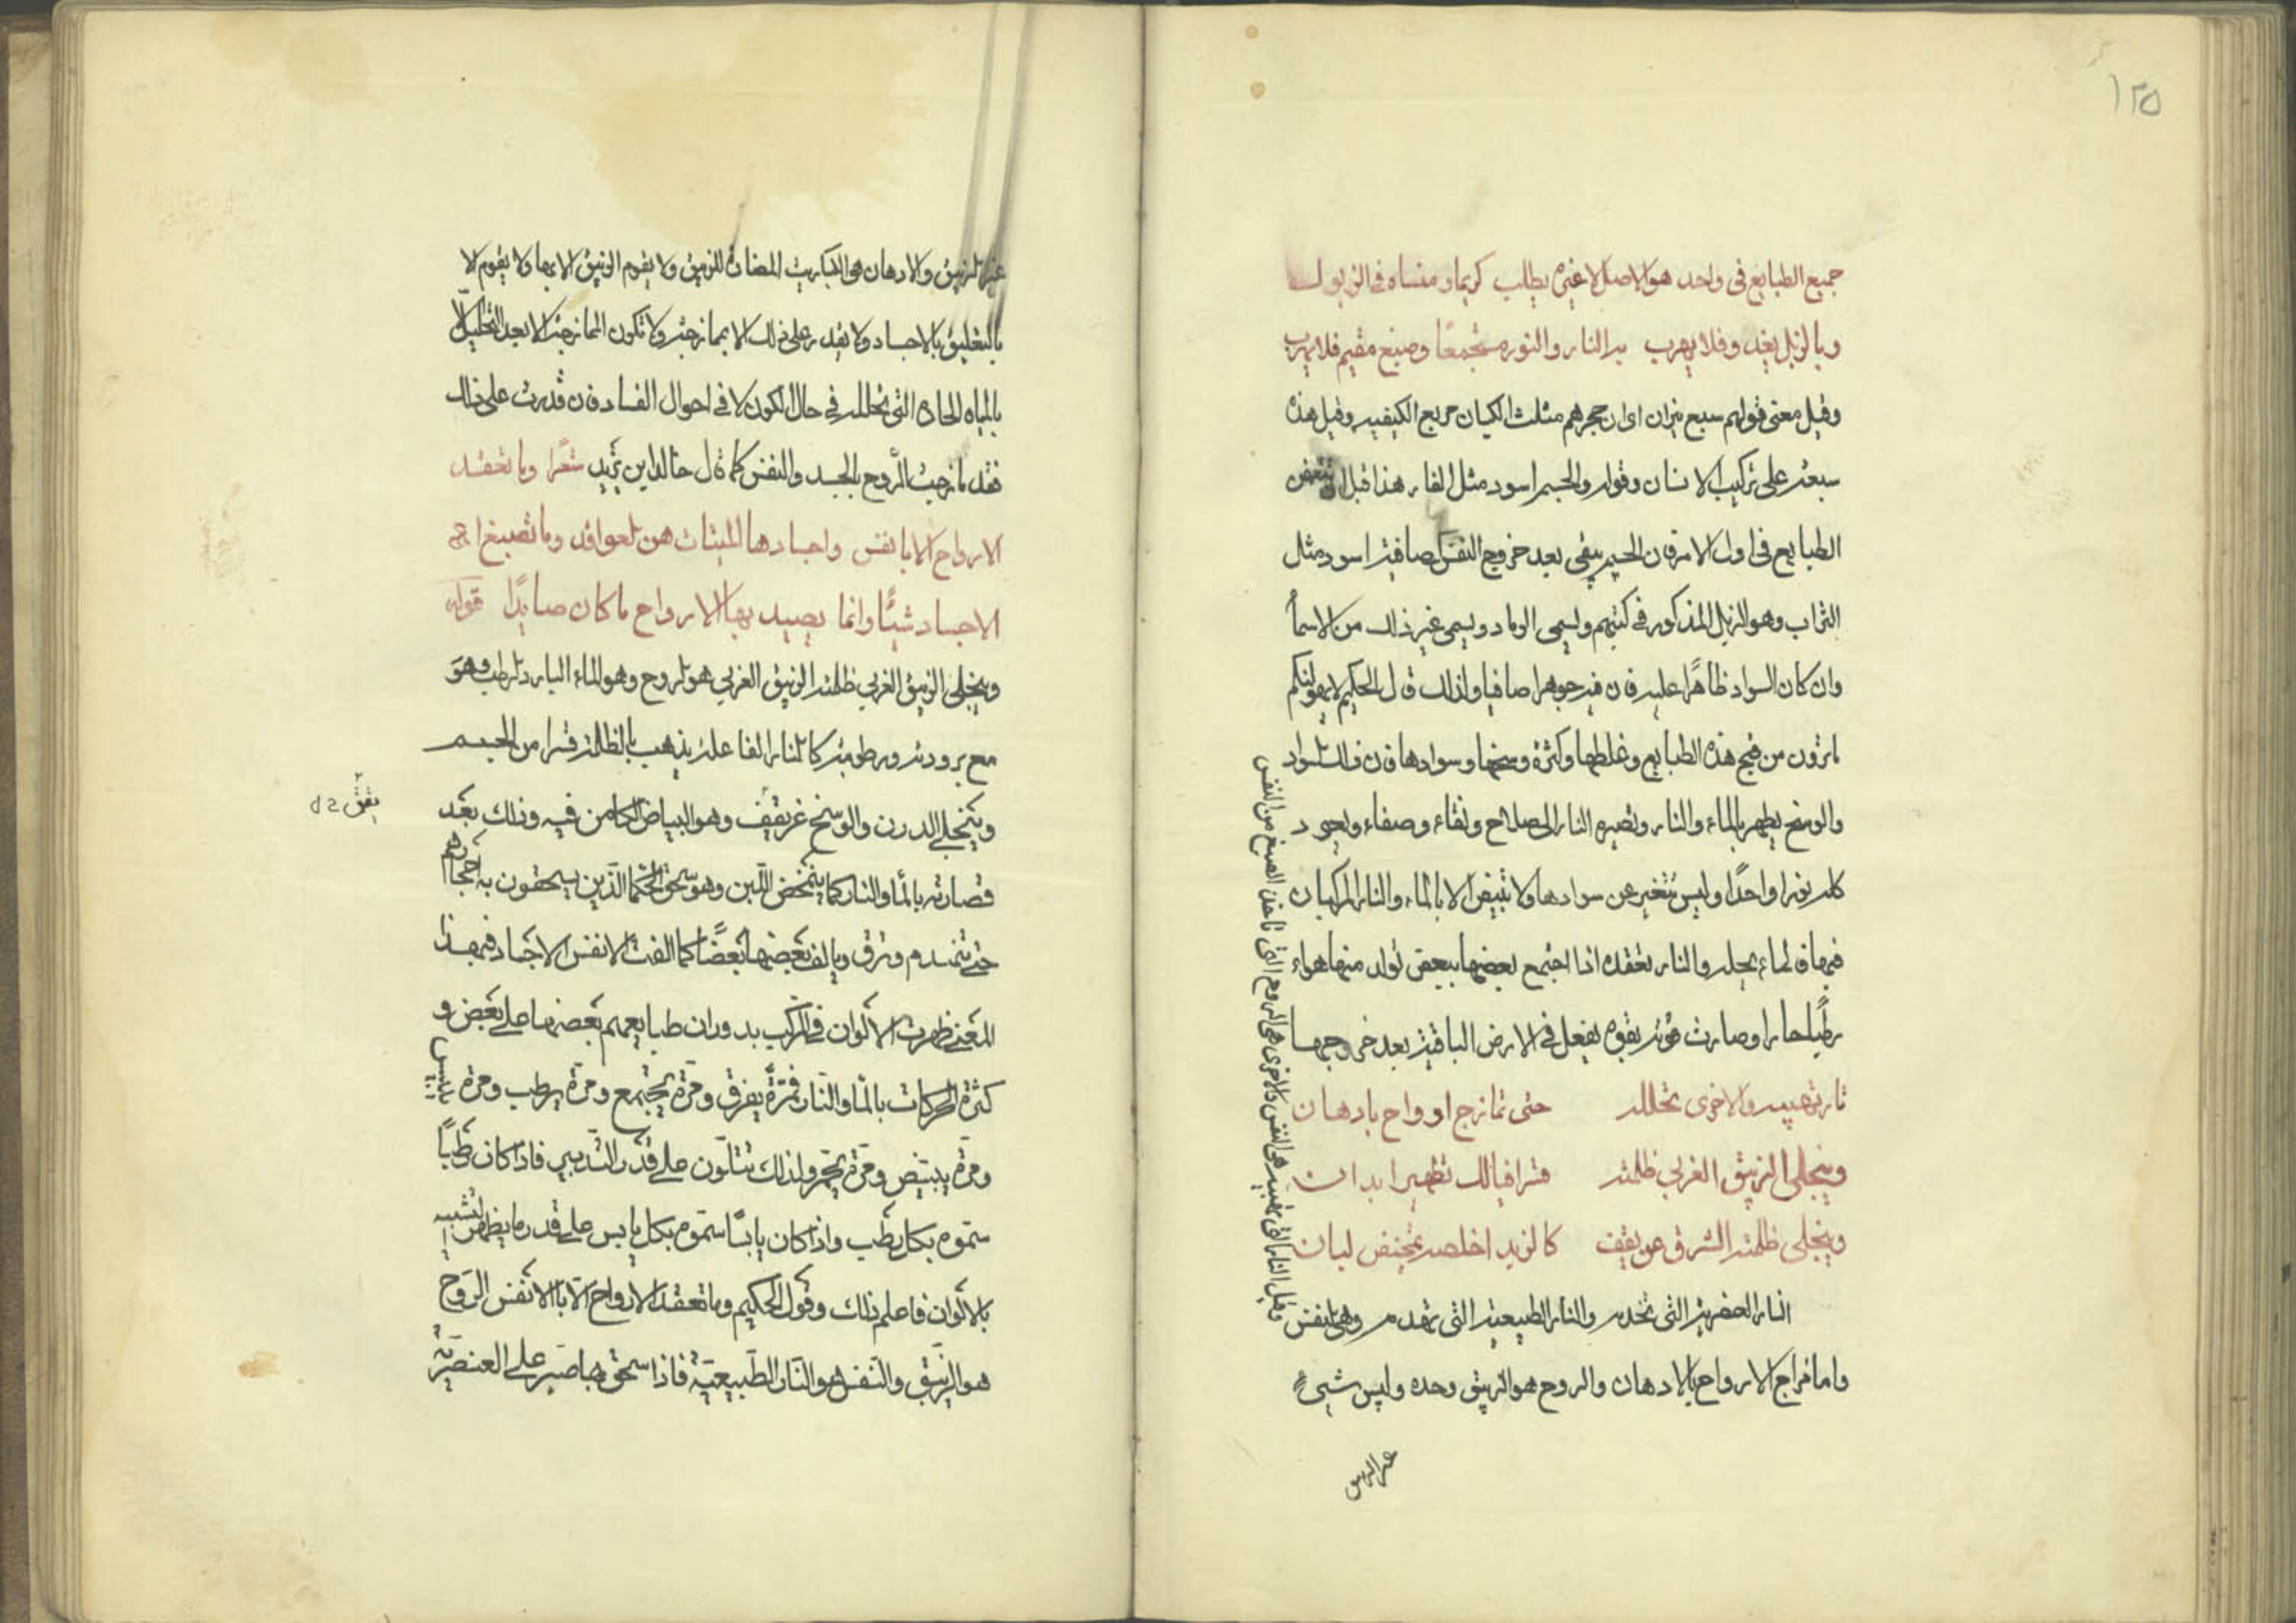 ١٢٥
جميع الطبايع فى واحد هو الاصل لا غيره يطلب كريما و منساه فى الزبول
وبالزبل يغدو فلا يهرب يد النار والنور مستجمعا وصبغ مقيم فلا يهرب
وقيل معنى قولهم سبع نيران اى ان حجرهم مثلث الكيان مربع الكيفيه وقيل هذه
سبعه على تركيب الانسان وقوله والجسم اسود مثل القار هذا قبل ان تنتقض
الطبايع فى اول الامر فان الجسم يبقى بعد خروج النفس الصافية اسود مثل
التراب وهو الزبل المذكور فى كتبهم ويسمى الرماد ويسمى غير ذلك من الاسمآ
وان كان السواد ظاهرا عليه فان فيه جوهرا صافيا ولذلك قال الحكيم لا يهولنكم
ما ترون من قبح هذه الطبايع وغلظها وكثرة وسخها وسوادها فان ذلك السواد
والوسخ يطهر بالماء والنار وتصيره النار الى صلاح ونقاء وصفاء ويعود
كله نورا واحدًا وليس تتغير عن سوادها ولا تبيض الا بالماء والنار المركبان
فيها فالماء يحله والنار تعقده اذا اجتمع بعضها ببعض تولد منها هواء
رطبًا حارا وصارت قوته بقوه يفعل فى الارض الباقية بعد خروجها
نار تهيبه والاخرى تحلله حتى تمازج ارواح بادهان
وينجلى الزيبق الغربي ظلمته قسرا فيالك تطهير ابدان
وينجلى ظلمته الشرق عن يقف كالزبد اخلصه تمخيض لبان
النار العنصرية التى تخدم والنار الطبيعية التى تهدم وهى النفس
واما مزاج الارواح بالادهان والروح هو الزيبق وحده وليس شىء
وقيل النار التى تهيبه هى النفس والاخرى هى الروح التى تاخذ الصبغ من النفس
غير الزيبق
غير الزيبق والادهان هو الكباريت المضافة للزيبق ولا يقوم الزيبق الا بها ولا يقوم الا
بالتعليق بالاجساد ولا يقدر على ذلك الا بممازجته ولا تكون الممازجة الا بعد التحليل الا
بالمياه الحاده التى تحلله فى حال الكون لا فى احوال الفساد فان قدرت على ذلك
فقد مازجت الروح بالجسد والنفس كما قال خالد ابن يزيد شعرًا وما تعقد
الارواح الا بانفس واجسادها الميتات هن لعواقد وما تصبغ ا
الاجساد شيئًا وانما يصيد بها الارواح ما كان صايدًا قوله
وينجلى الزيبق الغربي ظلمته الزيبق الغربي هو الروح وهو الماء البارد الرطب وهو
مع برودته ورطوبته كالنار الفاعله يذهب بالظلمة قسرا من الجسم
وينجلى الدرن والوسخ عن يقيف وهو البياض الكامن فيه وذلك بعد
يقق
قصارته بالمآ والنار كما يتمخض اللبن وهو سحق الحكما الذين يسحقون به احجارهم
حتى تنهدم وترق ويالف بعضها بعضًا كما الفت الانفس الاجساد فبهذا
المعنى ظهرت الالوان فى المركب بدوران طبايعهم بعضها على بعض و
كثرة الحركات بالمآ والنار فمرّة يفرق ومرّة يجتمع ومرّة يرطب ومرّة ييبس
ومرّة يبيض ومرّة يحمر ولذلك تتلون على قدر التدبير فاذا كان رطبًا
سمّوه بكل رطب واذا كان يابسًا سمّوه بكل يابس على قدر ما يظهر لتشبيه
بالالوان فاعلم ذلك وقول الحكيم وما تعقد الارواح الا بالانفس الروح
هو الزيبق والنفس هو النار الطبيعية فاذا سحق بها صبر على العنصرية